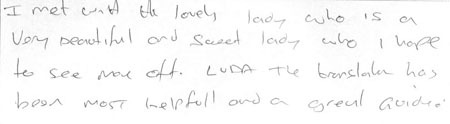 I met with the lovely lady who is a
Very beautiful and sweet lady who I hope
to see more off. LUDA The translater has
been most helpfull and a great Guide.